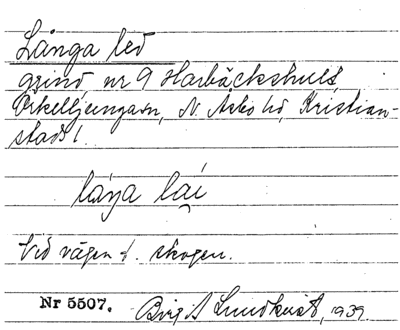 Långa led
grind, nr 9 Harbäckshult,
Örkelljunga sn, N. Åsbo hd, Kristian-
stads l.
låŋa laí
Vid vägen t. skogen.
Nr 5507. Birgit Lundkvist, 1939.